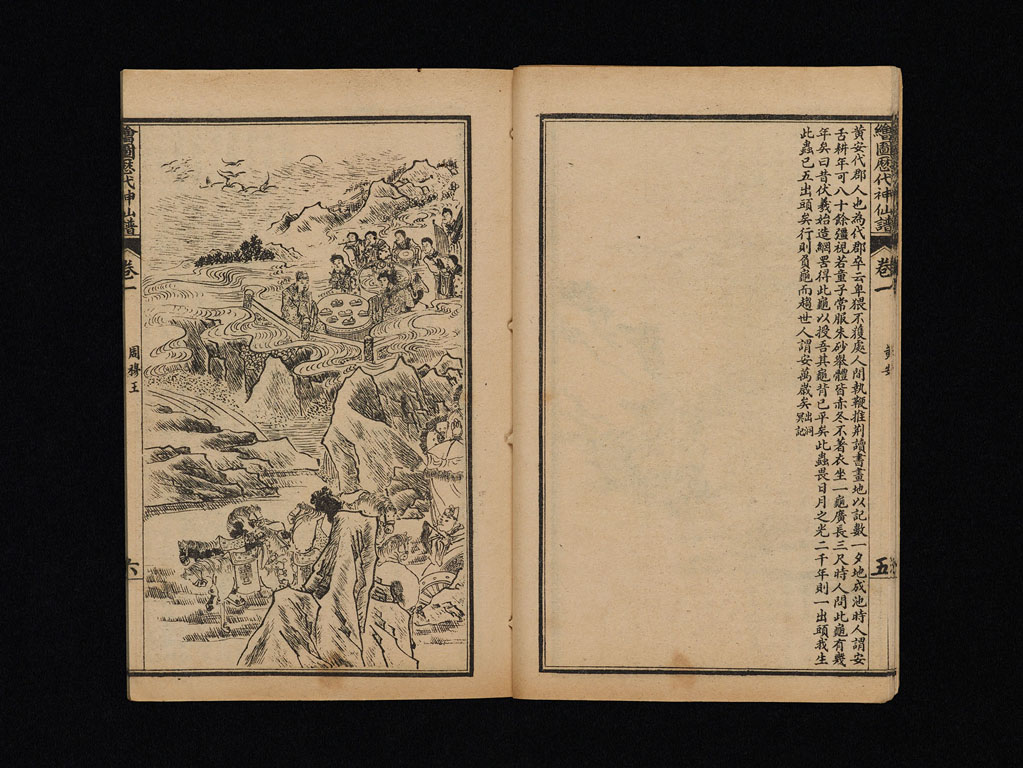 繪圖厯代神仙譜
卷一
黃安
五
黃安代郡人也為代郡卒云卑猥不獲處人間執鞭推荊讀書畫地以記數一夕地成池時人謂安
舌耕年可八十餘彊視若童子常服朱砂舉體皆赤冬不著衣坐一龜廣長三尺時人問此龜有幾
年矣曰昔伏羲始造網罟得此龜以授吾其龜背已平矣此蟲畏日月之光二千年則一出頭我生
此蟲已五出頭矣行則負龜而趨世人謂安萬歲矣出洞冥記
繪圖厯代神仙譜
卷一
周穆王
六